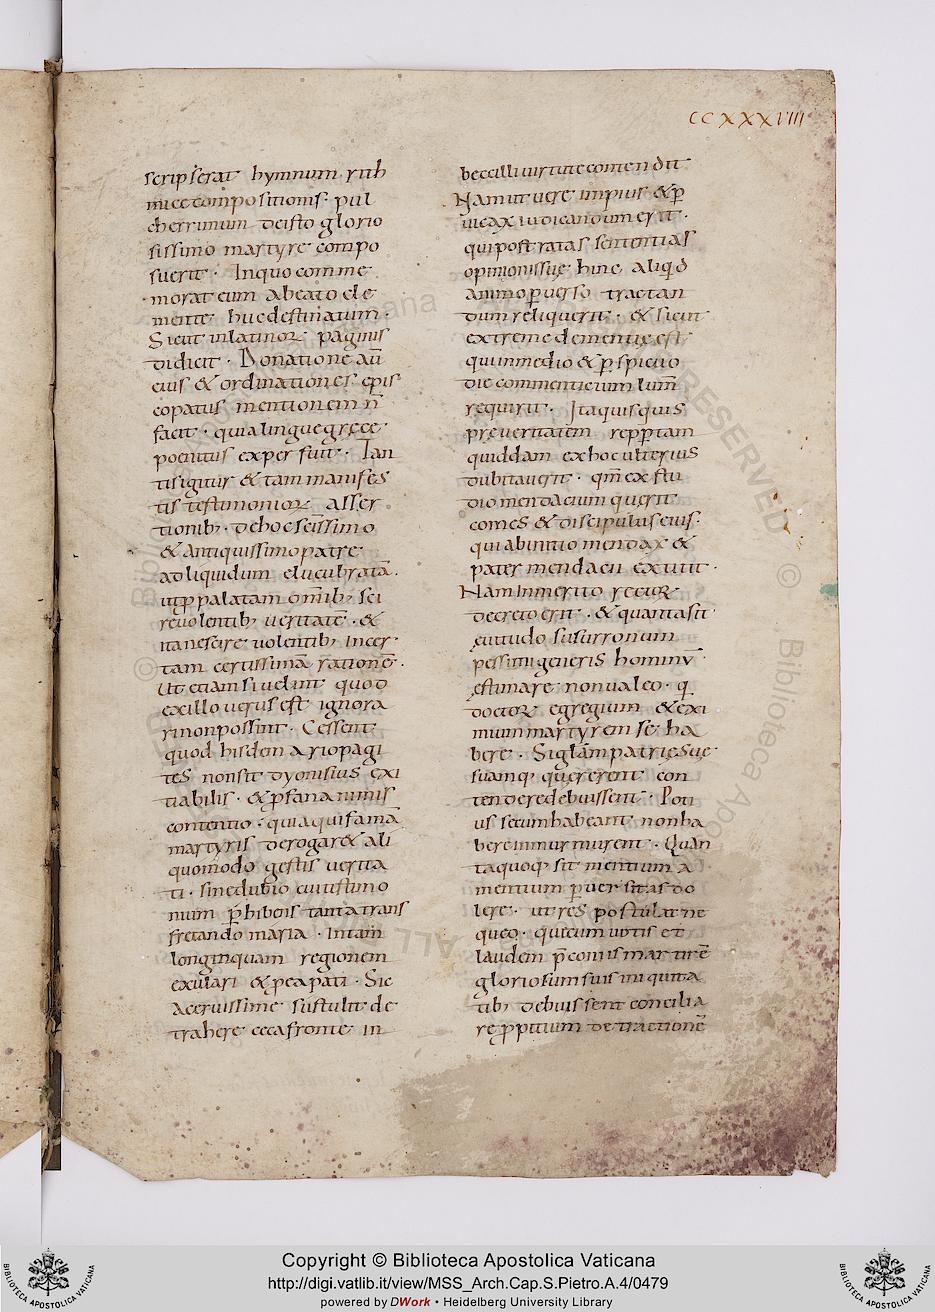 CCXXXVIIII
scripserat hymnum rith
mice compositionis · pul
cherrimum deisto glorio
sissimo martyre compo
suerit · Inquo comme
morat eum abeato cle
mente huc destinatum ·
Sicut inlatinoꝝ paginis
didicit · Donatione aū
eius & ordinationes ep̄is
copatus mentionem n̄
facit · quia lingue grece
poenitus exper fuit · Tan
tis igitur & tam manifes
tis testimonioꝝ asser
tionib; · dehoc sc̄issimo
& antiquissimo patre
adliquidum elucubratā ·
utꝓpalatam om̄ib; sci
re uolentib; ueritatē · &
itanescire uolentib; incer
tam certissimā rationē ·
Ut etiam si uelint quod
exillo uerus est ignora
ri non possint · Cessent
quod hisdem ariopagi
tes nonsit dyonisius exi
tiabilis · & ꝓfana nimis
contentio · quia quifamā
martyris derogar& ali
quomodo gestis uerita
ti · sinedubio cui uestimo
nium p̄hibens tanta trans
fretando maria · Intam
longinquam regionem
exulari & pea pati · Sic
aceruissime sustulit de
trahere ceca fronte in
beccilli uirtute contendit
Nam ut uere impius & ꝑ
uicax iudicandum erit ·
qui post ratas sententias
opinionis sue hinc aliqd
animo ꝑuerso tractan
dum reliquerit · & sicut
extreme dementie est
qui inmedio & ꝑspicuo
die commenticium lum̄
requirit · Itaquisquis
pre ueritatem reppertam
quiddam ex hoc ulterius
dubitauerit · qm̄ ex stu
dio mendacium querit
comes & discipulus eius ·
qui abinitio mendax &
pater mendacii extitit ·
Nam inmerito recur
decreto erit · & quanta sit
eutudo susurronum
pessimi generis hominū
estimare non ualeo · q
doctorꝝ egregium & exi
mium martyrem se ha
bere · Si glām patrie sue
suamq; quererent con
tendere debuissent · Poti
us secum habeant · non ha
bere inmurmurent · Quan
taquoq; sit mentium a
mentium ꝑuersitas do
lere · ut res postulat ne
queo · qui cum uotis et
laudem p̄conis martirē
gloriosum suis iniquita
tib; debuissent concilia
re ꝓpitium detractionē
Copyright © Biblioteca Apostolica Vaticana
http://digi.vatlib.it/view/MSS_Arch.Cap.S.Pietro.A.4/0479
powered by DWork • Heidelberg University Library